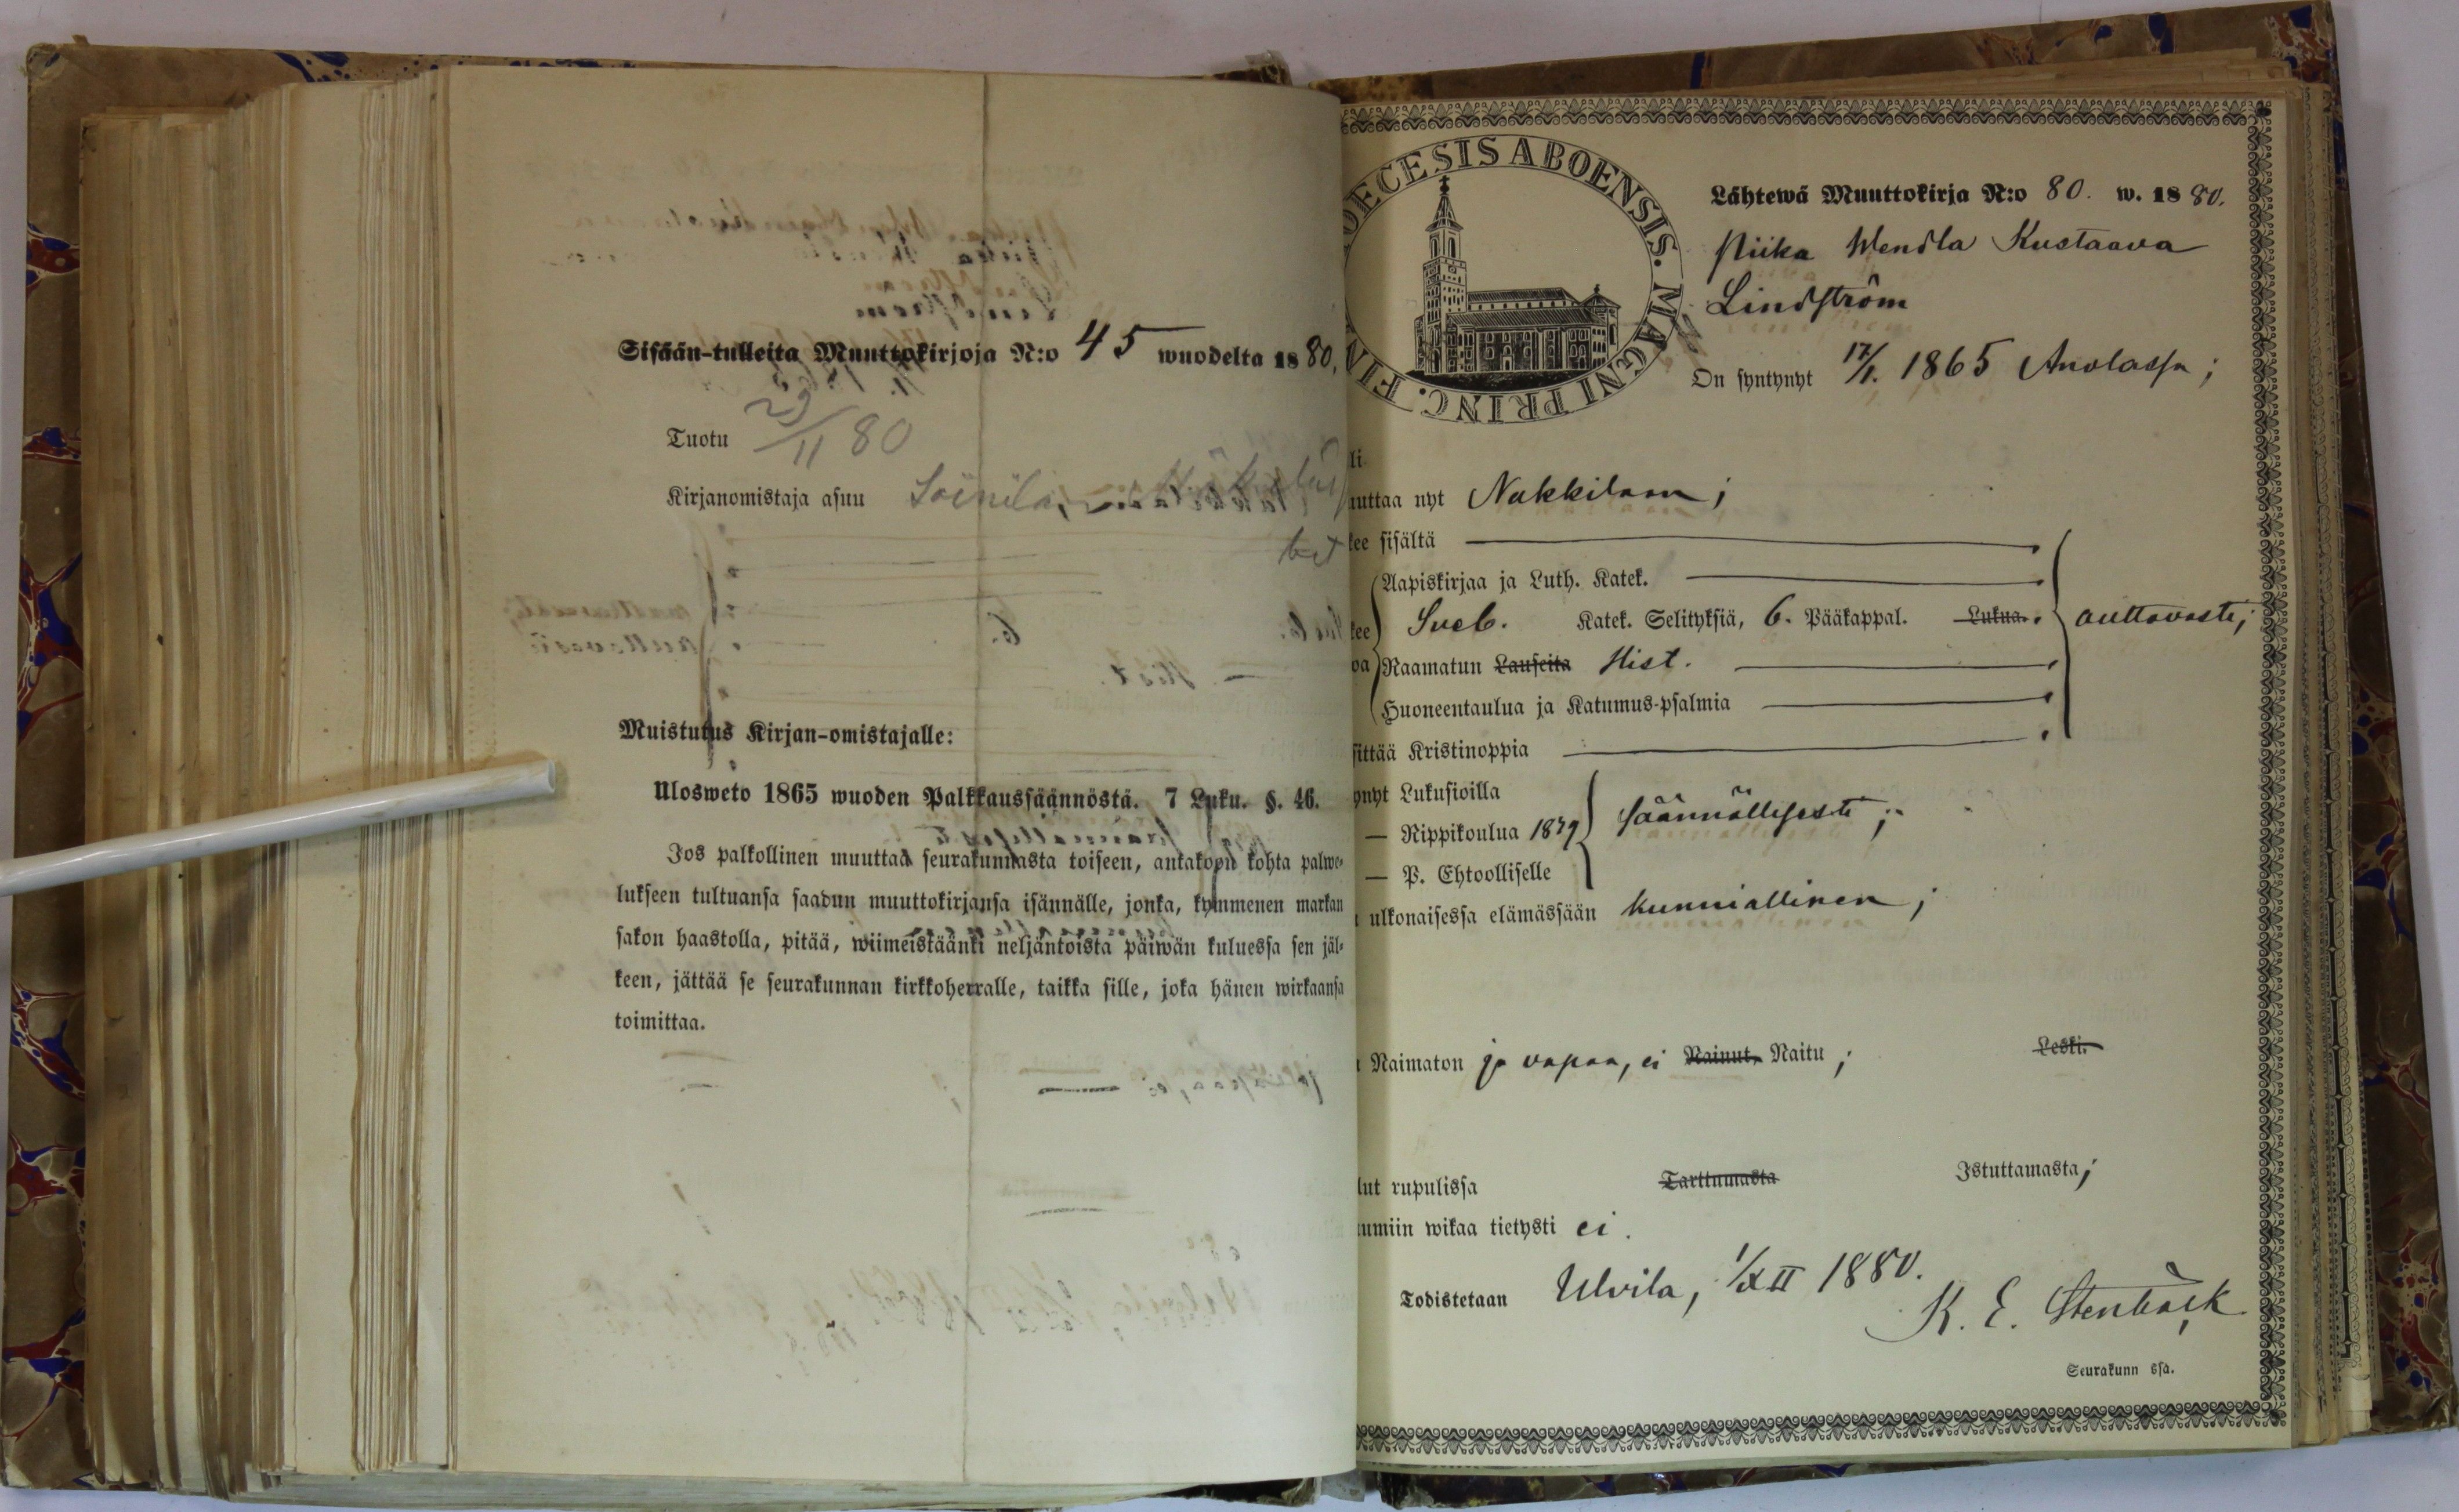 Sisään-tulleita Muuttokirjoja N:o 45 wuodelta 1880,
Tuotu 29/11 80
Kirjanomistaja asuu Soinila,
Muistutus Kirjan-omistajalle:
Ulosweto 1865 wuoden Palkkaussäännöstä. 7 Luku. §. 46.
Jos palkollinen muuttaa seurakunnasta toiseen, antakoon kohta palwe-
lukseen tultuansa saadun muuttokirjansa isännälle, jonka, kymmenen markan
sakon haastolla, pitää, wiimeistäänki neljäntoista päiwän kuluessa sen jäl-
keen, jättää se seurakunnan kirkkoherralle, taikka sille, joka hänen wirkaansa
toimittaa.
DECESIS ABOENSIS. MAGNI PRINC. FIN
Lähtewä Muuttokirja N:o 80. w. 1880.
Piika Wendla Kustaava
Lindström
On syntynyt 17/1. 1865 Anolassa;
li
uuttaa nyt Nakkilaan;
kee sisältä
Aapiskirjaa ja Luth. Katek.
kee Sveb. Katek. Selityksiä, 6. Pääkappal. Lukua. auttavasti;
wa Raamatun Lauseita Hist.
Huoneentaulua ja Katumus-psalmia
sittää Kristinoppia
ynyt Lukusioilla
— Rippikoulua 1879 säännöllisesti;
— P. Ehtoolliselle
ulkonaisessa elämässään kunniallinen;
Naimaton ja vapaa, ei Nainut, Naitu; Leski.
lut rupulissa Tarttumasta Istuttamasta;
tumiin wikaa tietysti ei.
Todistetaan Ulvila, 1/XII 1880.
K. E. Stenbäck
Seurakunn ssa.